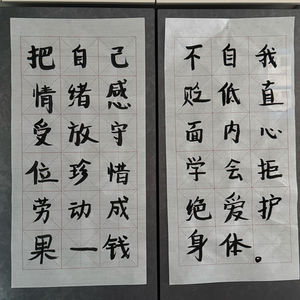 把自己
情绪感
受放守
位珍惜
劳动成
果一钱
不自我
贬低直
面内心
学会拒
绝爱护
身体。